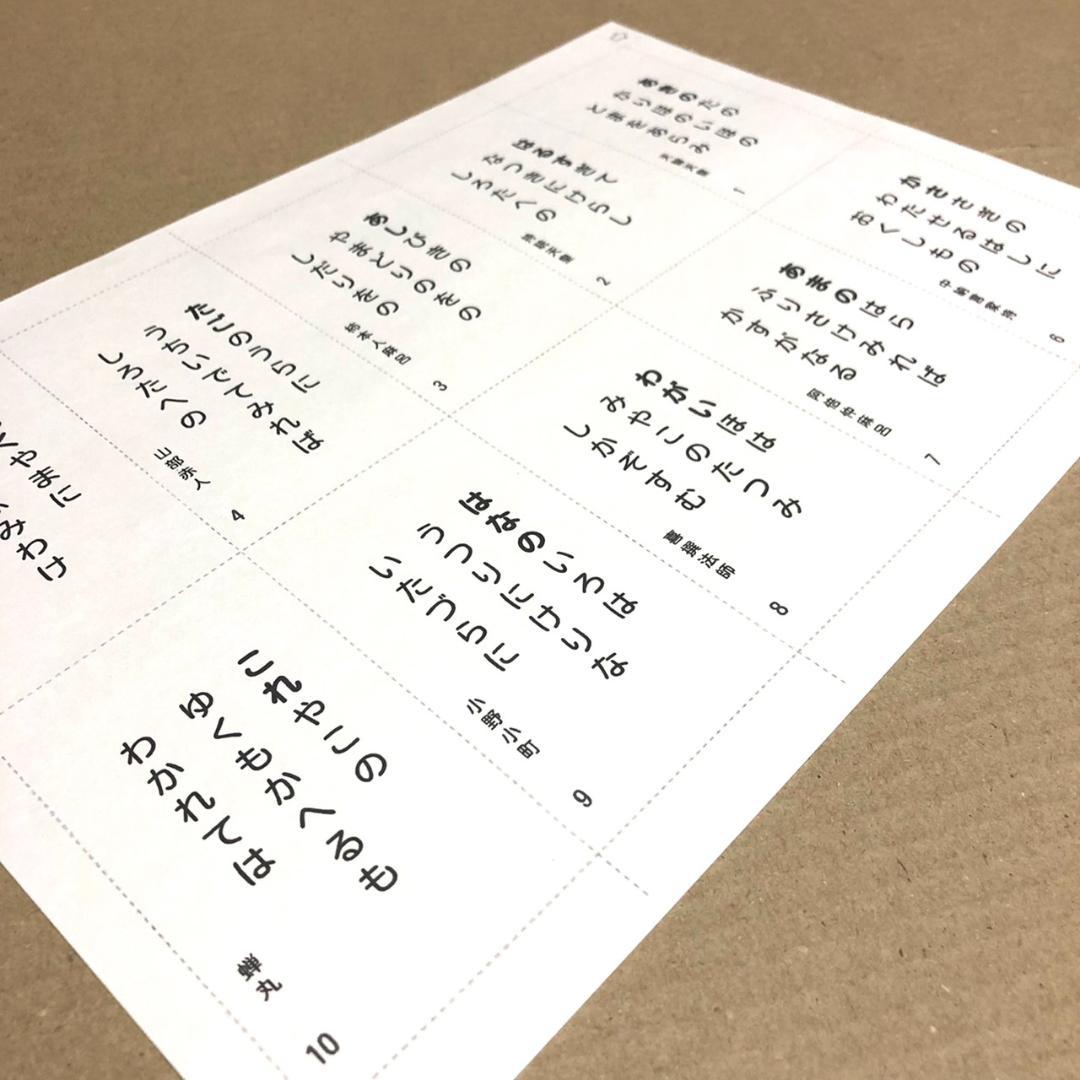 あきのたの
かりほのいほの
とまをあらみ
天智天皇
1
はるすぎて
なつきにけらし
しろたへの
持統天皇
2
あしびきの
やまどりのをの
しだりをの
柿本人麻呂
3
たごのうらに
うちいでてみれば
しろたへの
山部赤人
4
くやまに
みわけ
かささぎの
わたせるはしに
おくしもの
中納言家持
6
あまのはら
ふりさけみれば
かすがなる
阿倍仲麻呂
7
わがいほは
みやこのたつみ
しかぞすむ
喜撰法師
8
はなのいろは
うつりにけりな
いたづらに
小野小町
9
これやこの
ゆくもかへるも
わかれては
蝉丸
10